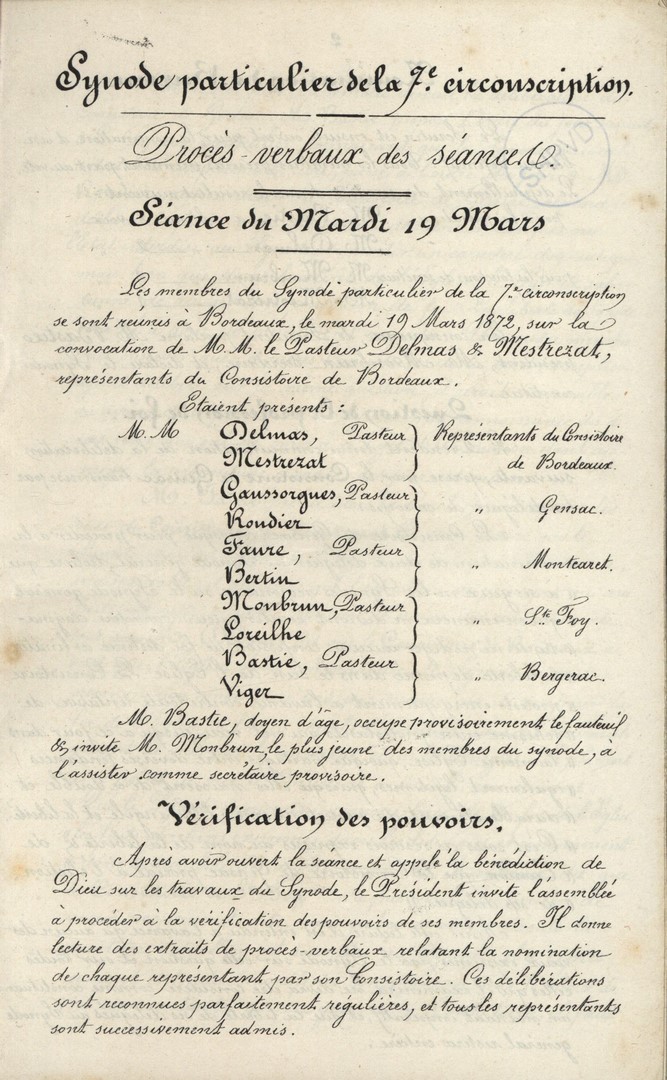 Synode particulier de la 7.e circonscription.
Procès-verbaux des séances.
Séance du Mardi 19 Mars
Les membres du Synode particulier de la 7.e circonscription
se sont réunis à Bordeaux, le mardi 19 Mars 1872, sur la
convocation de M.M. le Pasteur Delmas & Mestrezat,
représentants du Consistoire de Bordeaux.
Etaient présents :
M.M Delmas, Pasteur } Représentants du Consistoire
Mestrezat de Bordeaux.
Gaussorgues, Pasteur } " Gensac.
Roudier
Faure, Pasteur } " Montcaret.
Bertin
Monbrun, Pasteur } " Ste Foy.
Loreilhe
Bastie, Pasteur } " Bergerac.
Viger
M. Bastie, doyen d'âge, occupe provisoirement le fauteuil
&, invite M. Monbrun, le plus jeune des membres du synode, à
l'assister comme secrétaire provisoire.
Vérification des pouvoirs.
Après avoir ouvert la séance et appelé la bénédiction de
Dieu sur les travaux du Synode, le Président invite l'assemblée
à procéder à la vérification des pouvoirs de ses membres. Il donne
lecture des extraits de procès-verbaux relatant la nomination
de chaque représentant par son Consistoire. Ces délibérations
sont reconnues parfaitement régulières, et tous les représentants
sont successivement admis.